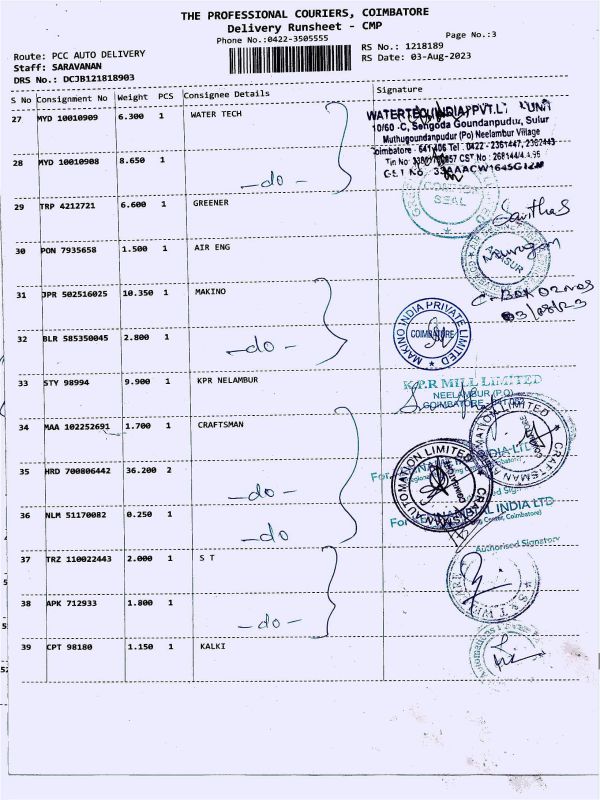 THE PROFESSIONAL COURIERS, COIMBATORE
Delivery Runsheet - CMP
Phone No.:0422-3505555
Page No.:3
Route: PCC AUTO DELIVERY
RS No.: 1218189
Staff: SARAVANAN
RS Date: 03-Aug-2023
DRS No.: DCJB121818903
S No Consignment No Weight PCS Consignee Details Signature
27 MYD 10010909 6.300 1 WATER TECH
WATERTEC(INDIA)PVT.LT UNIT
10/60 -C, Sengoda Goundanpudur, Sulur
Muthugoundanpudur (Po) Neelambur Village
Coimbatore - 641406 Tel : 0422 - 2361447, 2362443
28 MYD 10010908 8.650 1 -do-
29 TRP 4212721 6.600 1 GREENER
SEAL
30 PON 7935658 1.500 1 AIR ENG
31 JPR 502516025 10.350 1 MAKINO
03/08/23
MAKINO INDIA PRIVATE LIMITED
COIMBATORE
32 BLR 585350045 2.800 1 -do-
33 STY 98994 9.900 1 KPR NELAMBUR
K.P.R MILL LIMITED
NEELAMBUR (P.O)
COIMBATORE
34 MAA 102252691 1.700 1 CRAFTSMAN
CRAFTSMAN AUTOMATION LIMITED
35 HRD 700806442 36.200 2 -do-
CRAFTSMAN AUTOMATION LIMITED
36 NLM 51170082 0.250 1 -do-
INDIA LTD
Authorised Signatory
37 TRZ 110022443 2.000 1 S T
38 APK 712933 1.800 1 -do-
39 CPT 98180 1.150 1 KALKI